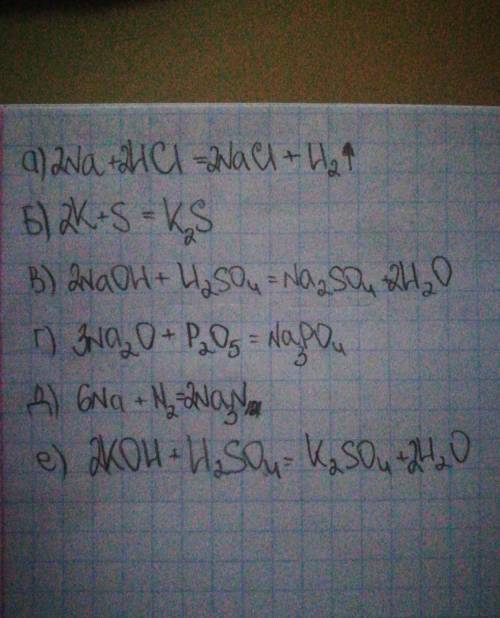 а) 2Na + 2HCl = 2NaCl + H₂↑
Б) 2K + S = K₂S
В) 2NaOH + H₂SO₄ = Na₂SO₄ + 2H₂O
Г) 3Na₂O + P₂O₅ = Na₃PO₄
Д) 6Na + N₂ = 2Na₃N
е) 2KOH + H₂SO₄ = K₂SO₄ + 2H₂O